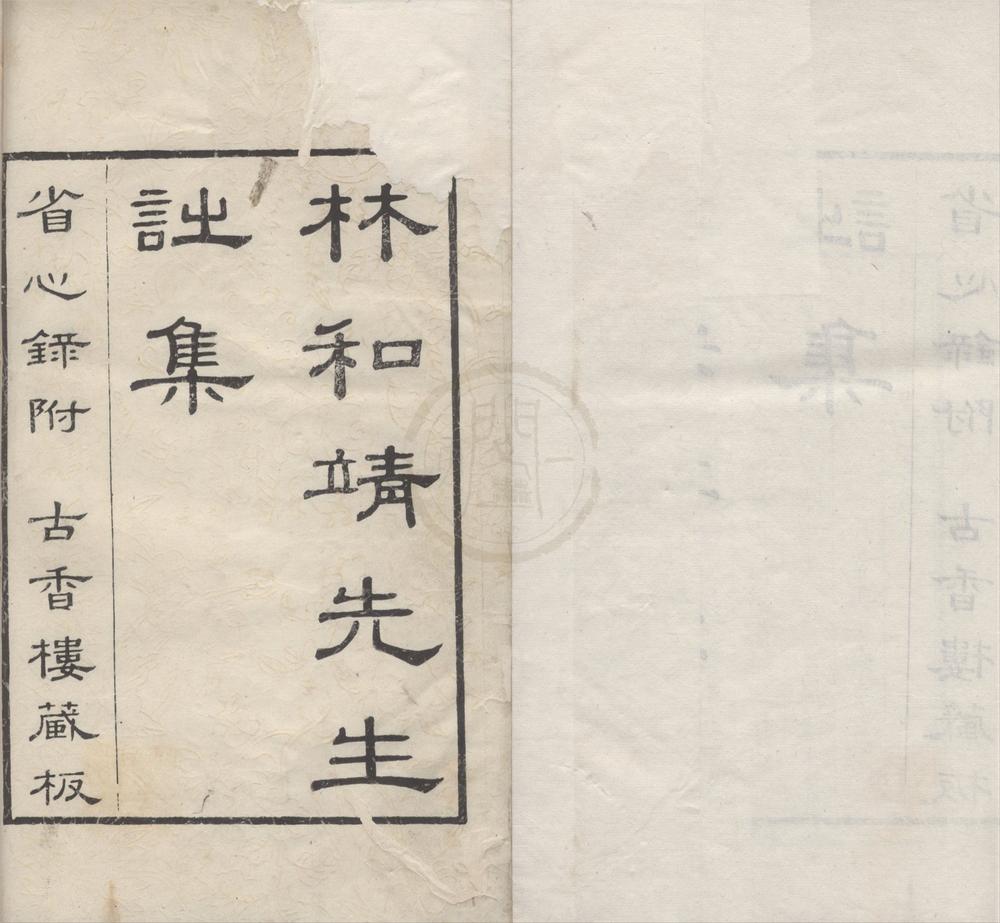 林和靖先生
詩集
省心錄附 古香樓藏板